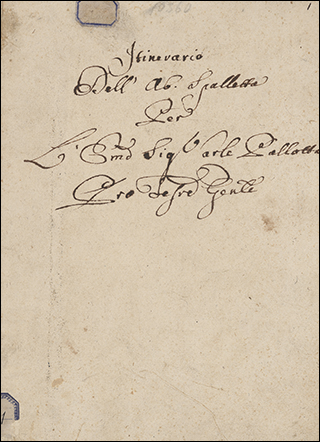 Itinerario
Dell' Ab. Spalletta
Per
L' Em̃o Sig.r Carle Pallotta
Pro Tesre Genle